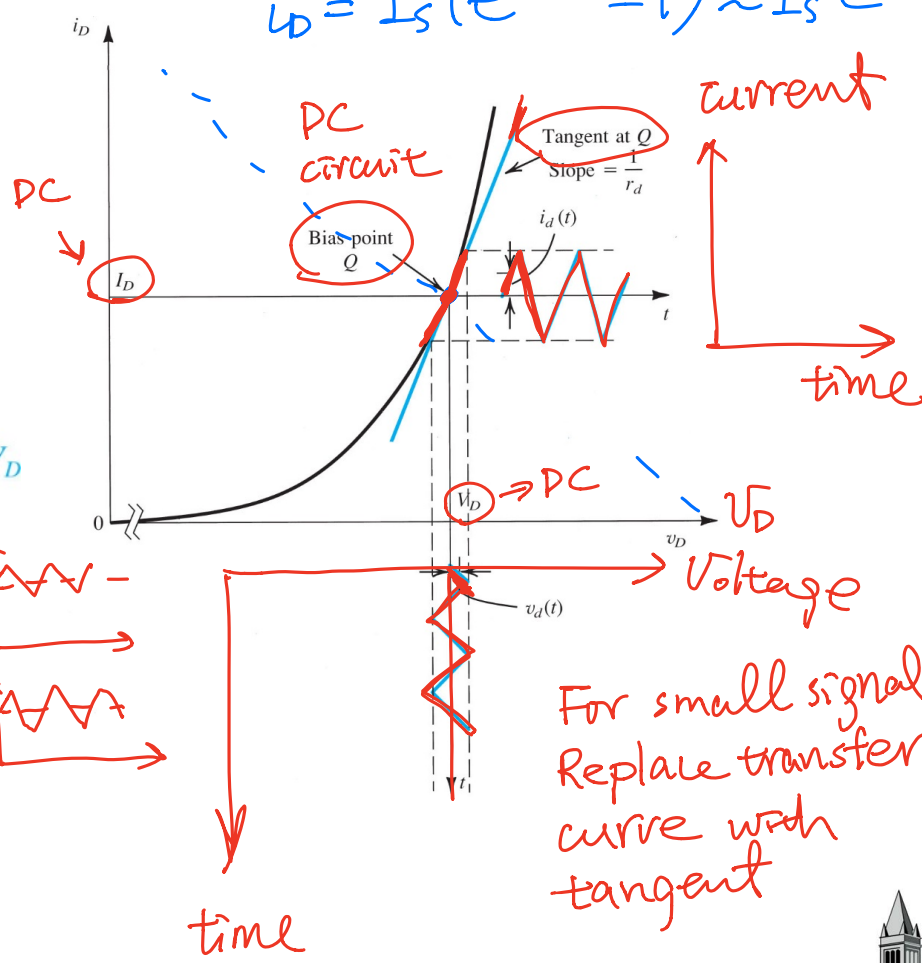 i_D = I_S(e -1) ≈ I_S e
i_D
current
DC
circuit
Tangent at Q
Slope = 1/r_d
DC
i_d (t)
Bias point
Q
I_D
t
time
V_D
V_D → DC
0
v_D
v_D
Voltage
v_d(t)
For small signal
Replace transfer
curve with
tangent
t
time